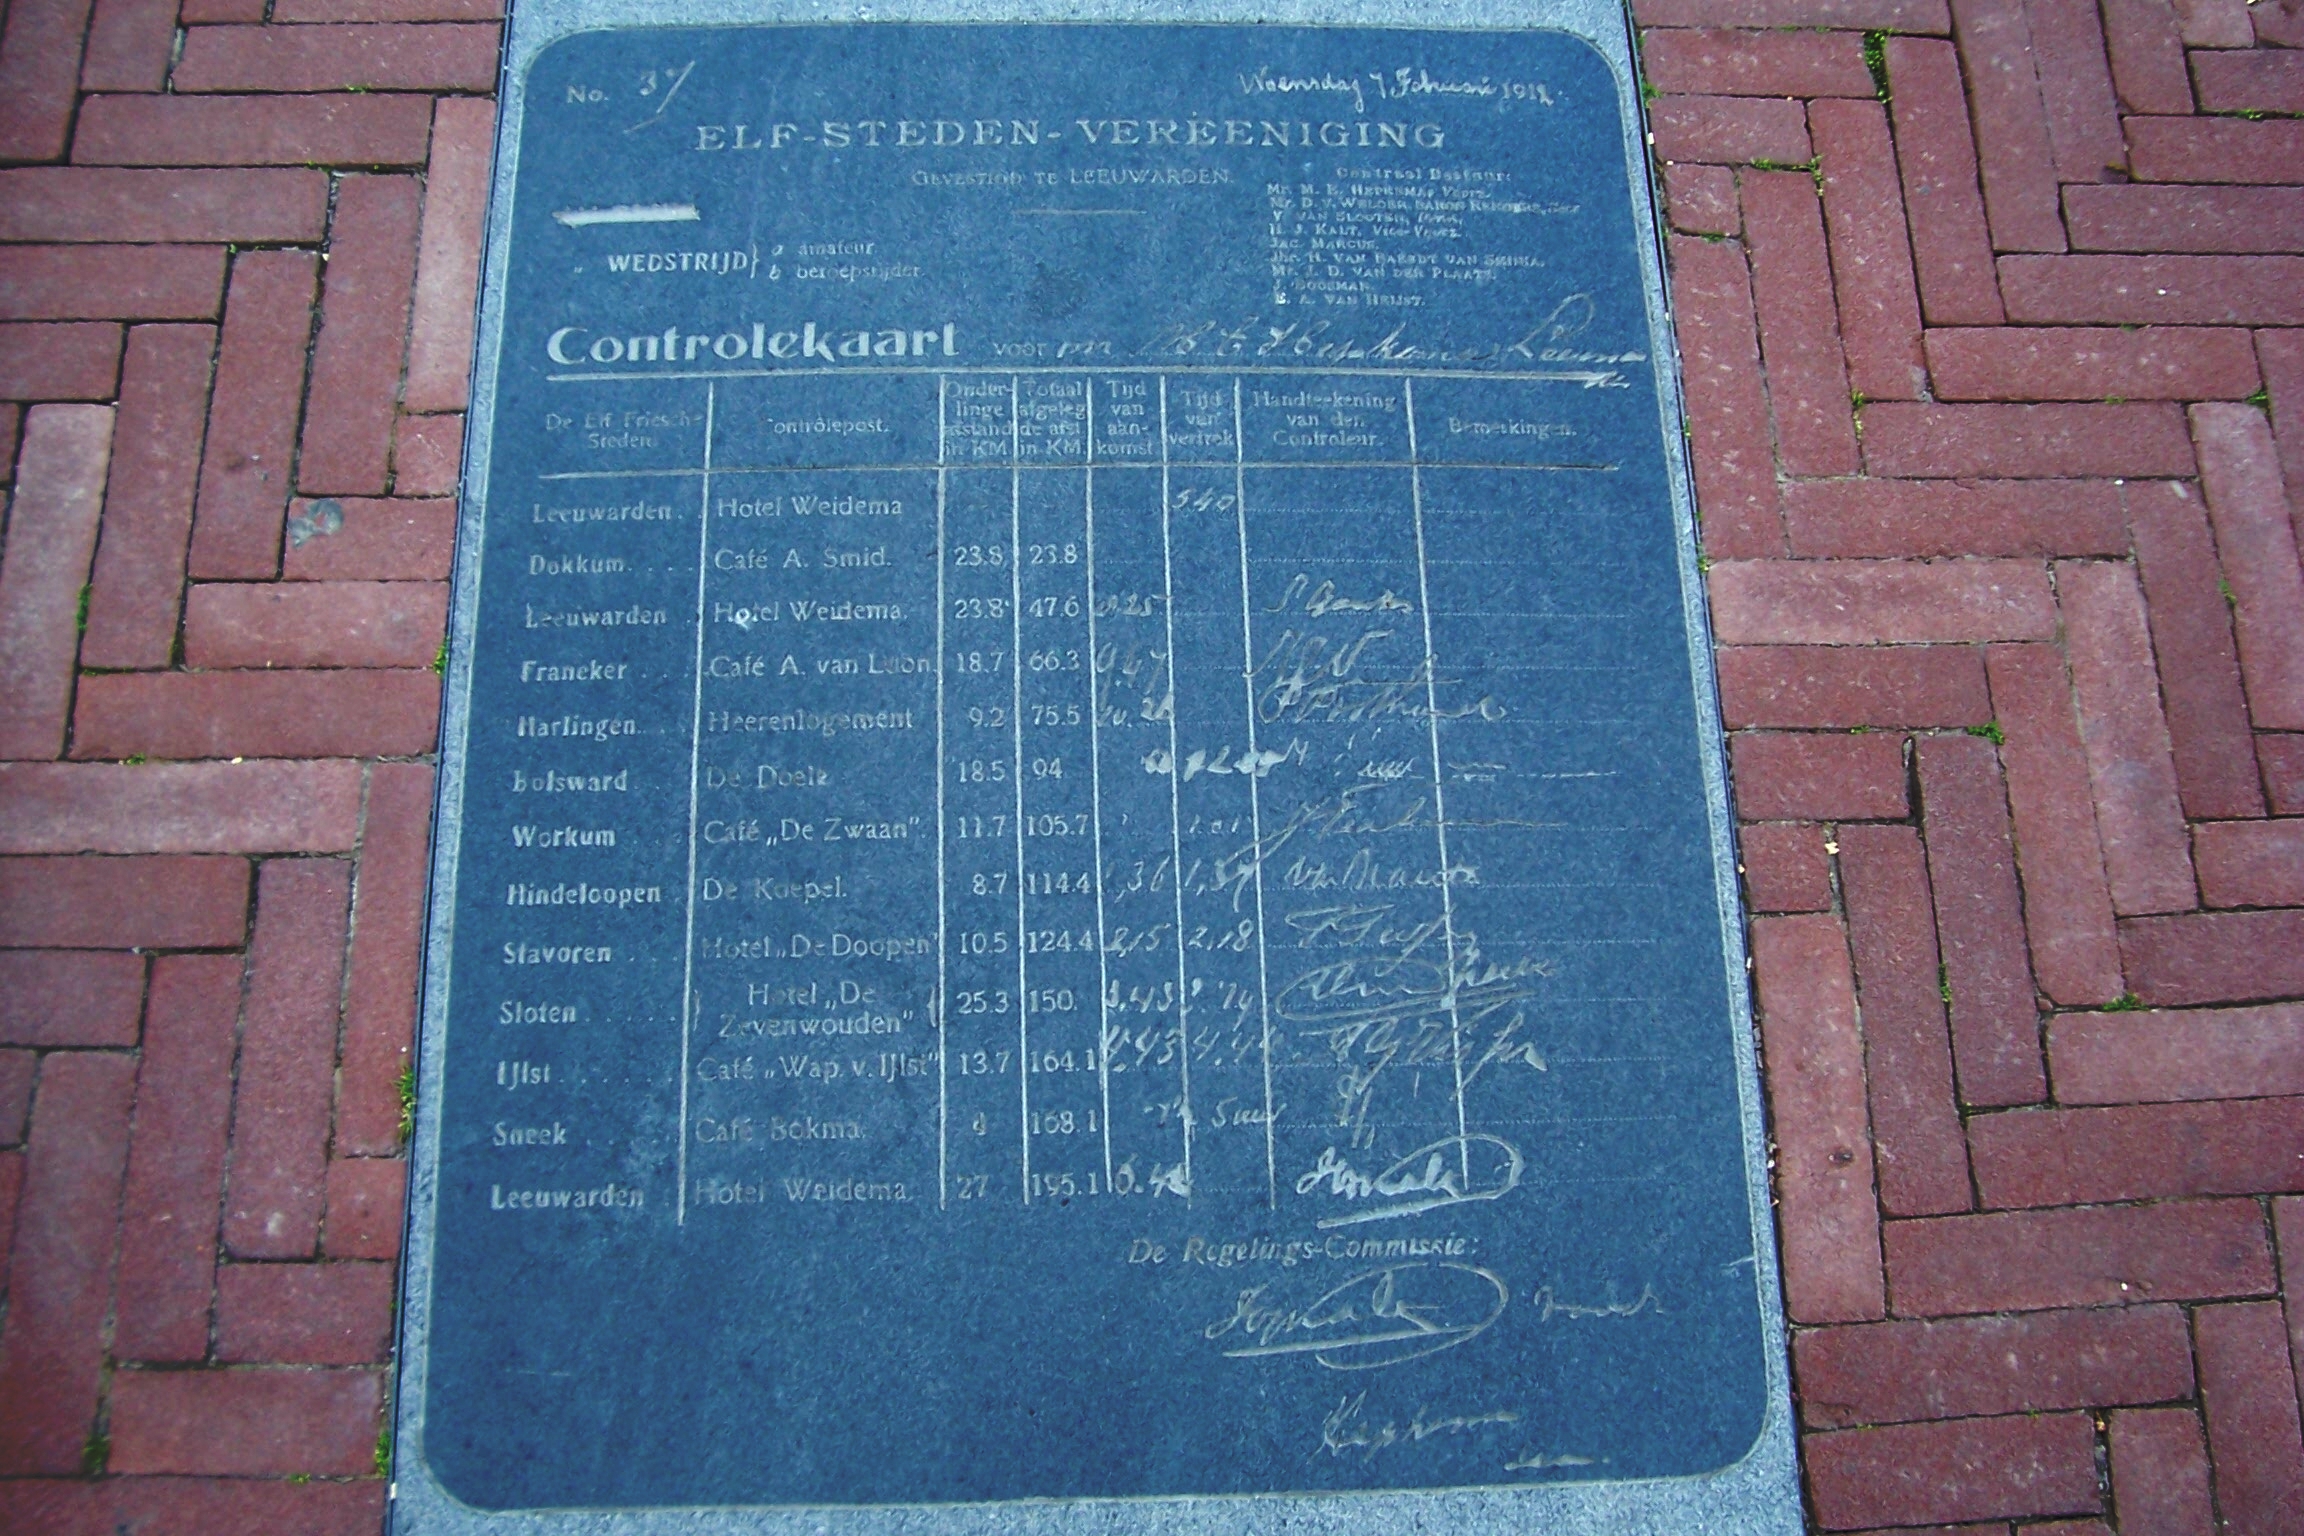 No. 37
Woensdag 7 Februari 1912.
ELF-STEDEN-VEREENIGING
GEVESTIGD TE LEEUWARDEN.
Centraal Bestuur:
Mr. M. E. HEPKEMA, Voorz.
Y. VAN SLOOTEN,
H. J. KALT, Vice-Voorz.
JAC. MARCUS.
Mr. J. D. VAN DER PLAATS.
J. BOOSMAN.
E. A. VAN HEIJST.
„ WEDSTRIJD} a amateur
b beroepsrijder.
Controlekaart voor mr M E Hepkema
De Elf Friesch- Steden. Controlepost. Onder- linge afstand in KM. Totaal afgeleg de afst in KM. Tijd van aan- komst Tijd van vertrek Handteekening van den Controleur. Bemerkingen.
Leeuwarden. Hotel Weidema 540
Dokkum. . . . Café A. Smid. 23.8 23.8
Leeuwarden Hotel Weidema. 23.8 47.6 8.25
Franeker . . . Café A. van Loon. 18.7 66.3 9.47
Harlingen. . . Heerenlogement 9.2 75.5
Bolsward De Doele 18.5 94
Workum Café „De Zwaan". 11.7 105.7
Hindeloopen De Koepel. 8.7 114.4 1,36 1,37
Stavoren . . . Hotel „De Doopen" 10.5 124.4 2,15 2,18
Sloten . . . . . } Hotel „De Zevenwouden" { 25.3 150.
IJlst . . . . . . Café „Wap. v. IJlst" 13.7 164.1 4.43 4.44
Sneek . . . . . Café Bokma. 4 168.1 5 uur
Leeuwarden . Hotel Weidema. 27 195.1
De Regelings-Commissie:
Hepkema